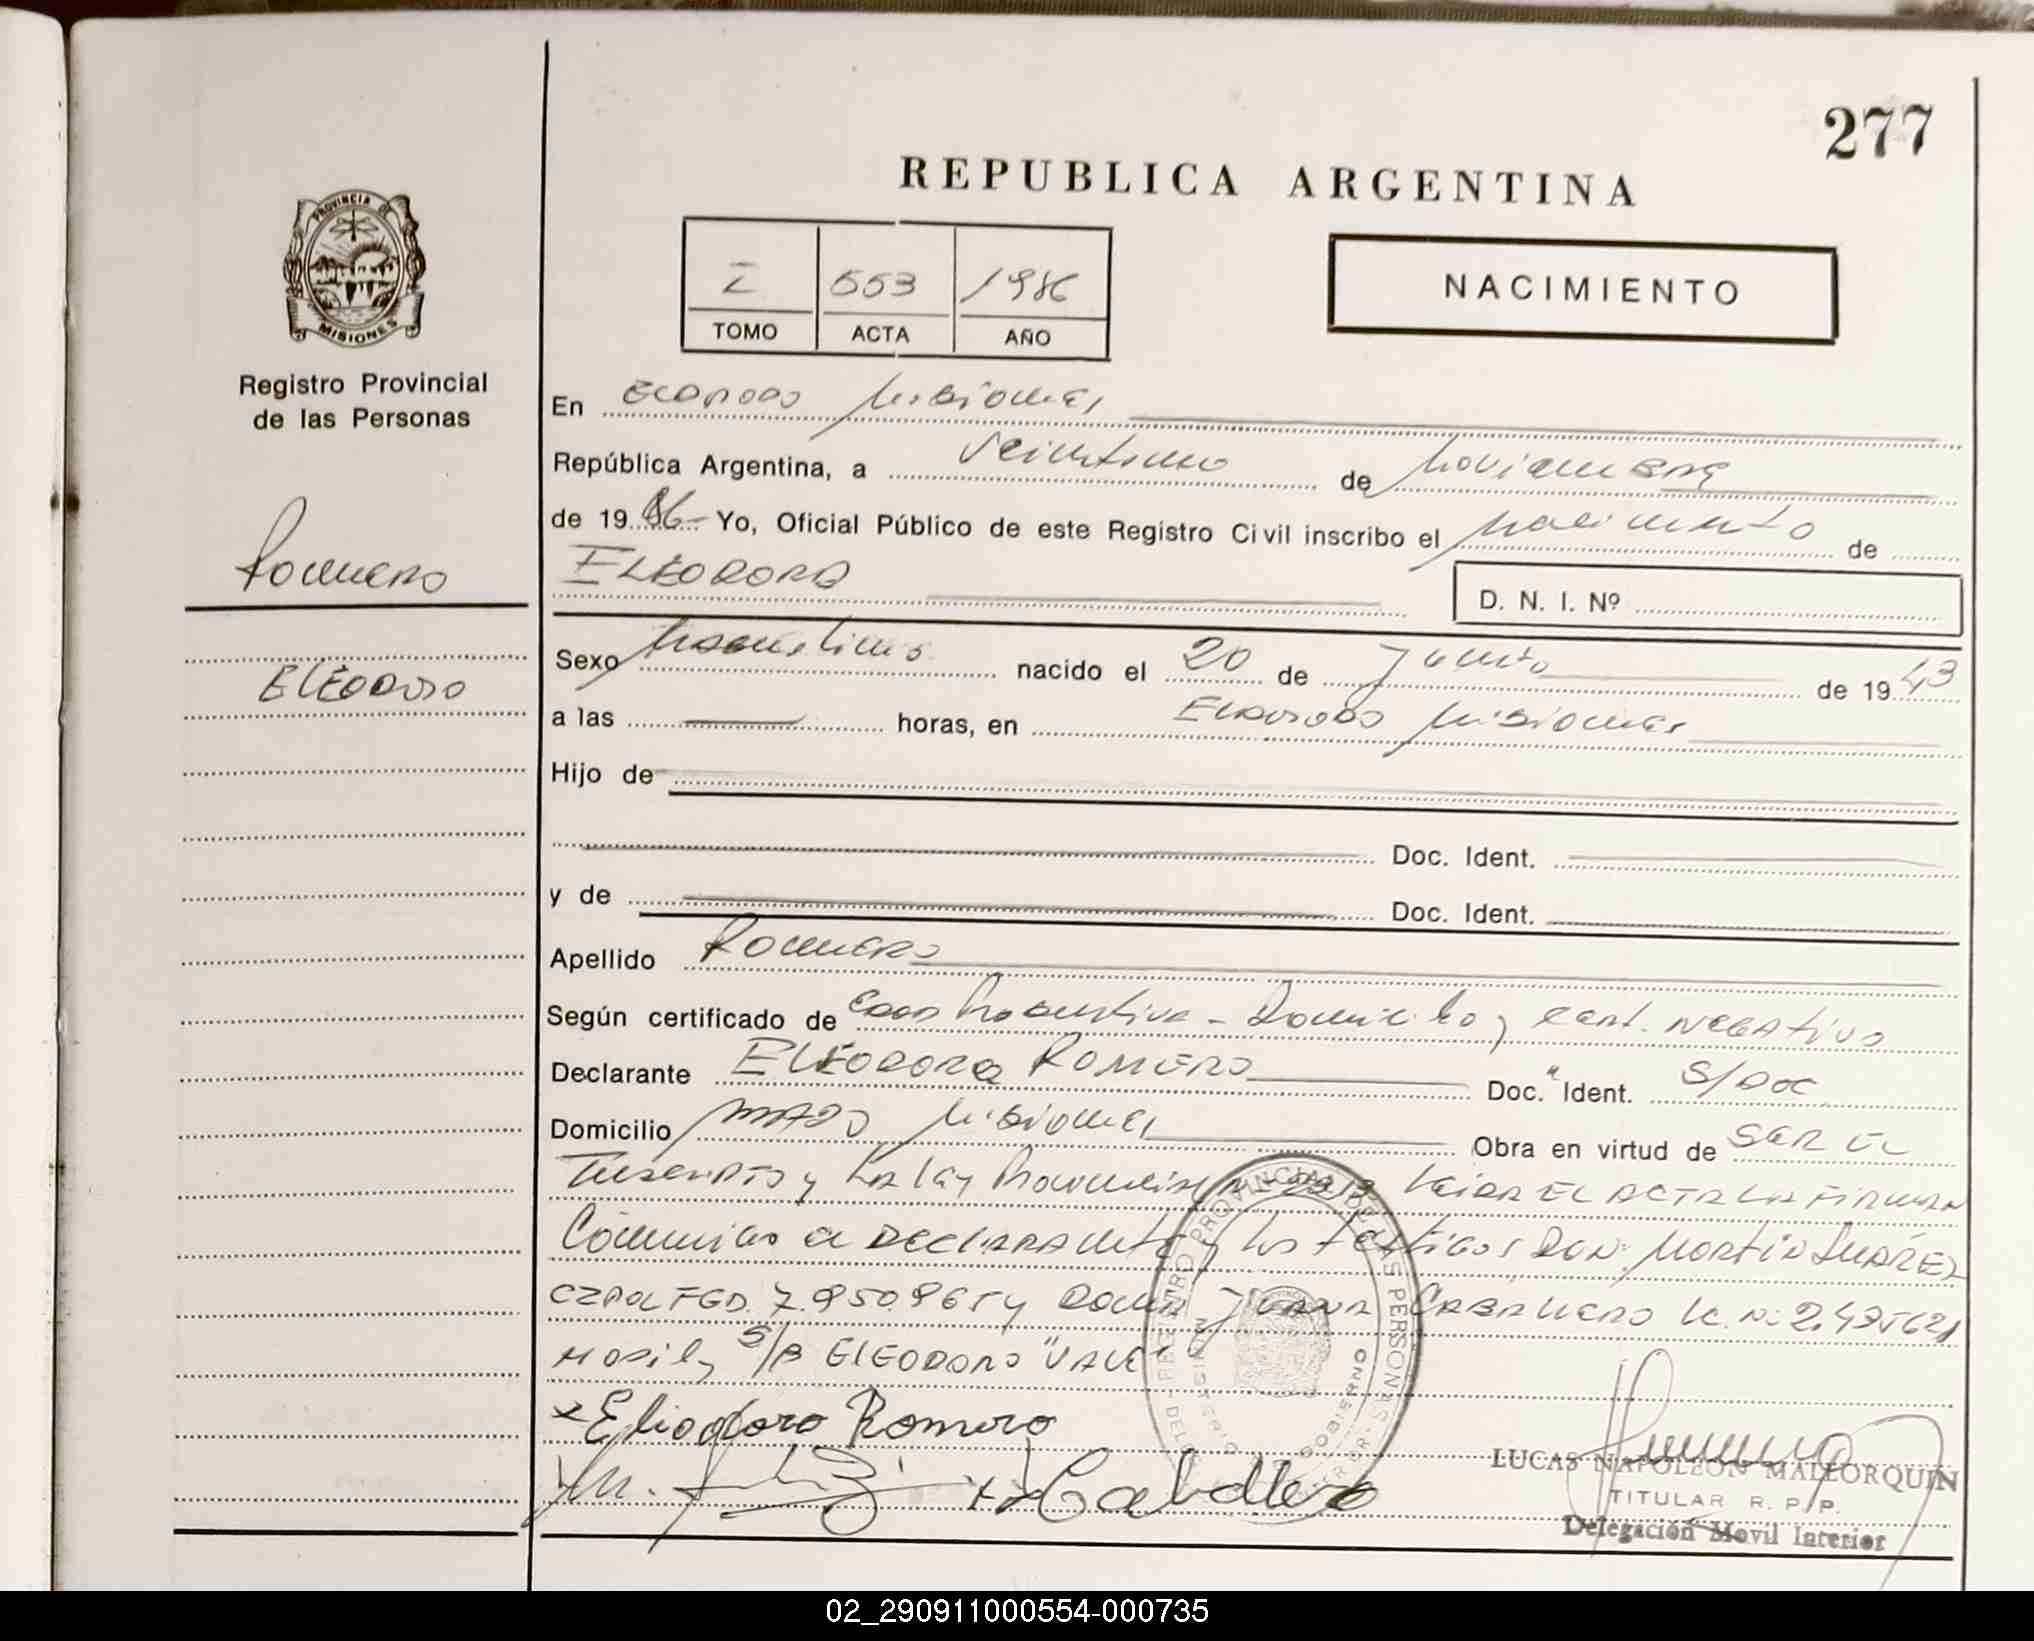 277
REPUBLICA ARGENTINA
PROVINCIA DE
MISIONES
Registro Provincial
de las Personas
Romero
Eleodoro
I 553 1986
TOMO ACTA AÑO
NACIMIENTO
En Eldorado Misiones
República Argentina, a veintiuno de noviembre
de 1986 Yo, Oficial Público de este Registro Civil inscribo el nacimiento de
ELEODORO
D. N. I. Nº
Sexo masculino nacido el 20 de Junio de 1943
a las horas, en Eldorado Misiones
Hijo de
Doc. Ident.
y de Doc. Ident.
Apellido Romero
Según certificado de Domicilio y cert. negativo
Declarante ELEODORO ROMERO Doc. Ident. S/Doc
Domicilio MADO Misiones Obra en virtud de SER EL
Inscripto y la ley Provincial Leida EL ACTA LA FIRMAN
Conmigo el DECLARANTE y los testigos DON: MARTIN SUÁREZ
7.950.965 y DOÑA JUANA CABALLERO LC. N: 2.495621
S/B ELEODORO "VALE"
x Eliodoro Romero
Caballero
LUCAS NAPOLEON MALLORQUIN
TITULAR R. P. P.
Delegación Movil Interior
02_290911000554-000735